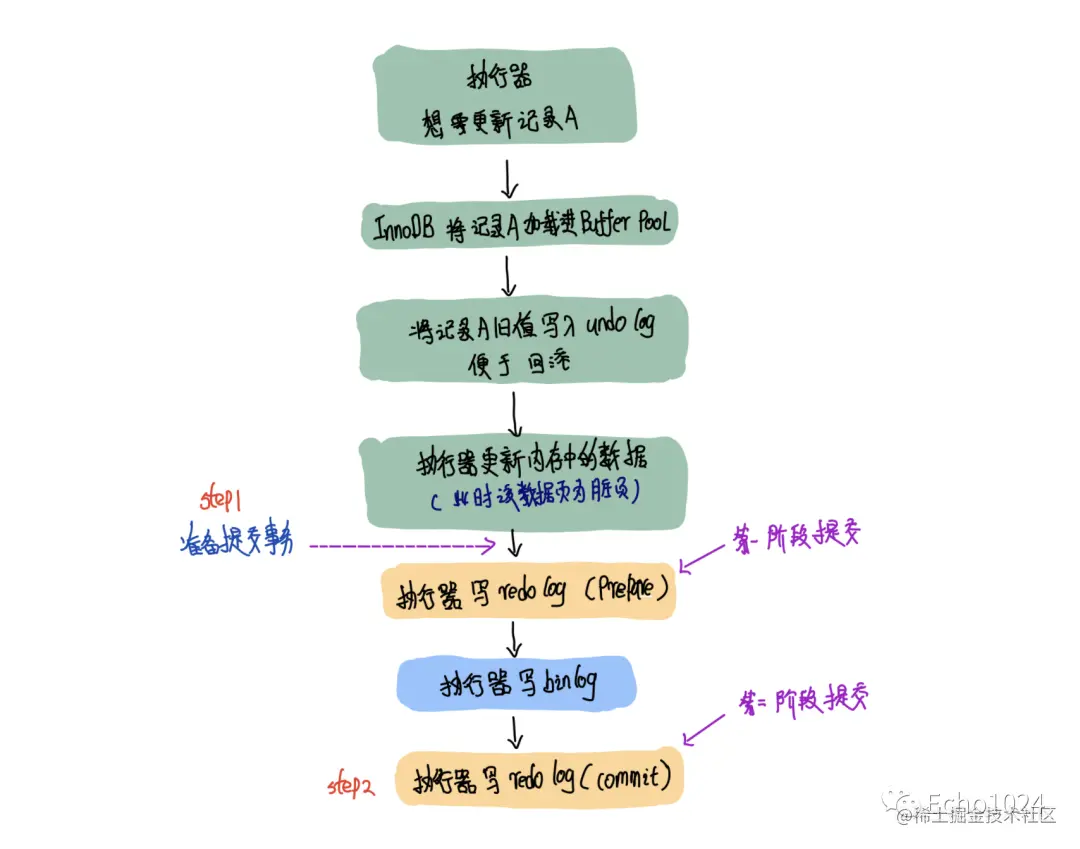 执行器
想要更新记录A
InnoDB 将记录A加载进Buffer Pool
将记录A旧值写入 undo log
便于回滚
执行器更新内存中的数据
(此时该数据页为脏页)
step1
准备提交事务
第一阶段提交
执行器写redo log (Prepare)
执行器写binlog
第二阶段提交
step2
执行器写redo log(commit)
Echo1024
@稀土掘金技术社区